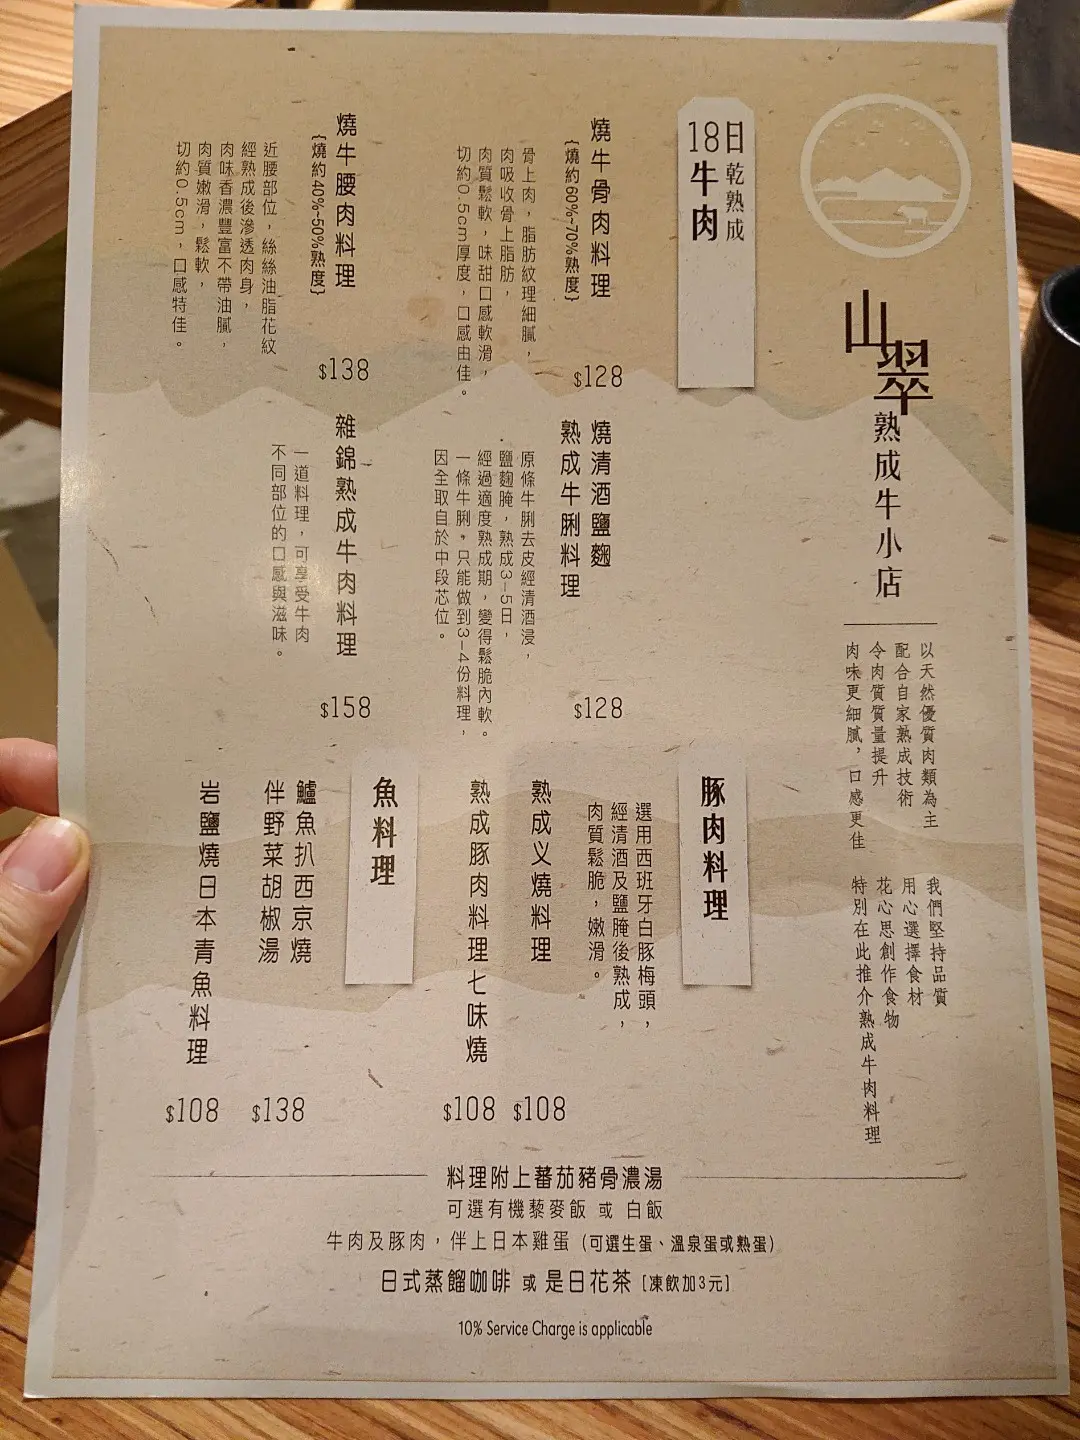 山翠
熟成牛小店
以天然優質肉類為主
配合自家熟成技術
令肉質質量提升
肉味更細膩，口感更佳
我們堅持品質
用心選擇食材
花心思創作食物
特別在此推介熟成牛肉料理
18日乾熟成
牛肉
燒牛骨肉料理
{燒約60%~70%熟度}
骨上肉，脂肪紋理細膩，
肉吸收骨上脂肪，
肉質鬆軟，味甜口感軟滑，
切約0.5cm厚度，口感由佳。
$128
燒牛腰肉料理
{燒約40%~50%熟度}
近腰部位，絲絲油脂花紋
經熟成後滲透肉身，
肉味香濃豐富不帶油膩，
肉質嫩滑，鬆軟，
切約0.5cm，口感特佳。
$138
燒清酒鹽麴
熟成牛脷料理
原條牛脷去皮經清酒浸，
鹽麴腌，熟成3-5日，
經過適度熟成期，變得鬆脆內軟。
一條牛脷。只能做到3-4份料理，
因全取自於中段芯位。
$128
雜錦熟成牛肉料理
一道料理，可享受牛肉
不同部位的口感與滋味。
$158
豚肉料理
選用西班牙白豚梅頭，
經清酒及鹽腌後熟成，
肉質鬆脆，嫩滑。
熟成义燒料理
$108
熟成豚肉料理七味燒
$108
魚料理
鱸魚扒西京燒
伴野菜胡椒湯
$138
岩鹽燒日本青魚料理
$108
料理附上蕃茄豬骨濃湯
可選有機藜麥飯 或 白飯
牛肉及豚肉，伴上日本雞蛋 (可選生蛋、溫泉蛋或熟蛋)
日式蒸餾咖啡 或 是日花茶 [凍飲加3元]
10% Service Charge is applicable